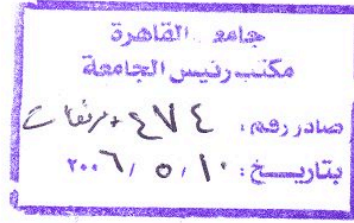 جامعة القاهرة
مكتب رئيس الجامعة
صادر رقم : ٤٧٤ + مرفقات
بتاريخ : ١٠ / ٥ / ٢٠٠٦